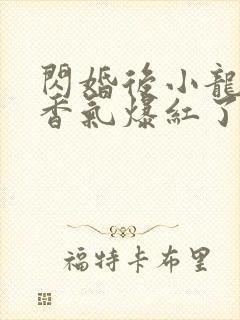 閃婚後小龍
香氣爆紅了
福特卡布里